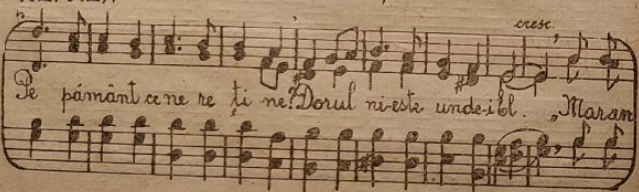 cresc.
Pe pământ ce ne re ți ne? Dorul ni-este unde-i bl. „Maran